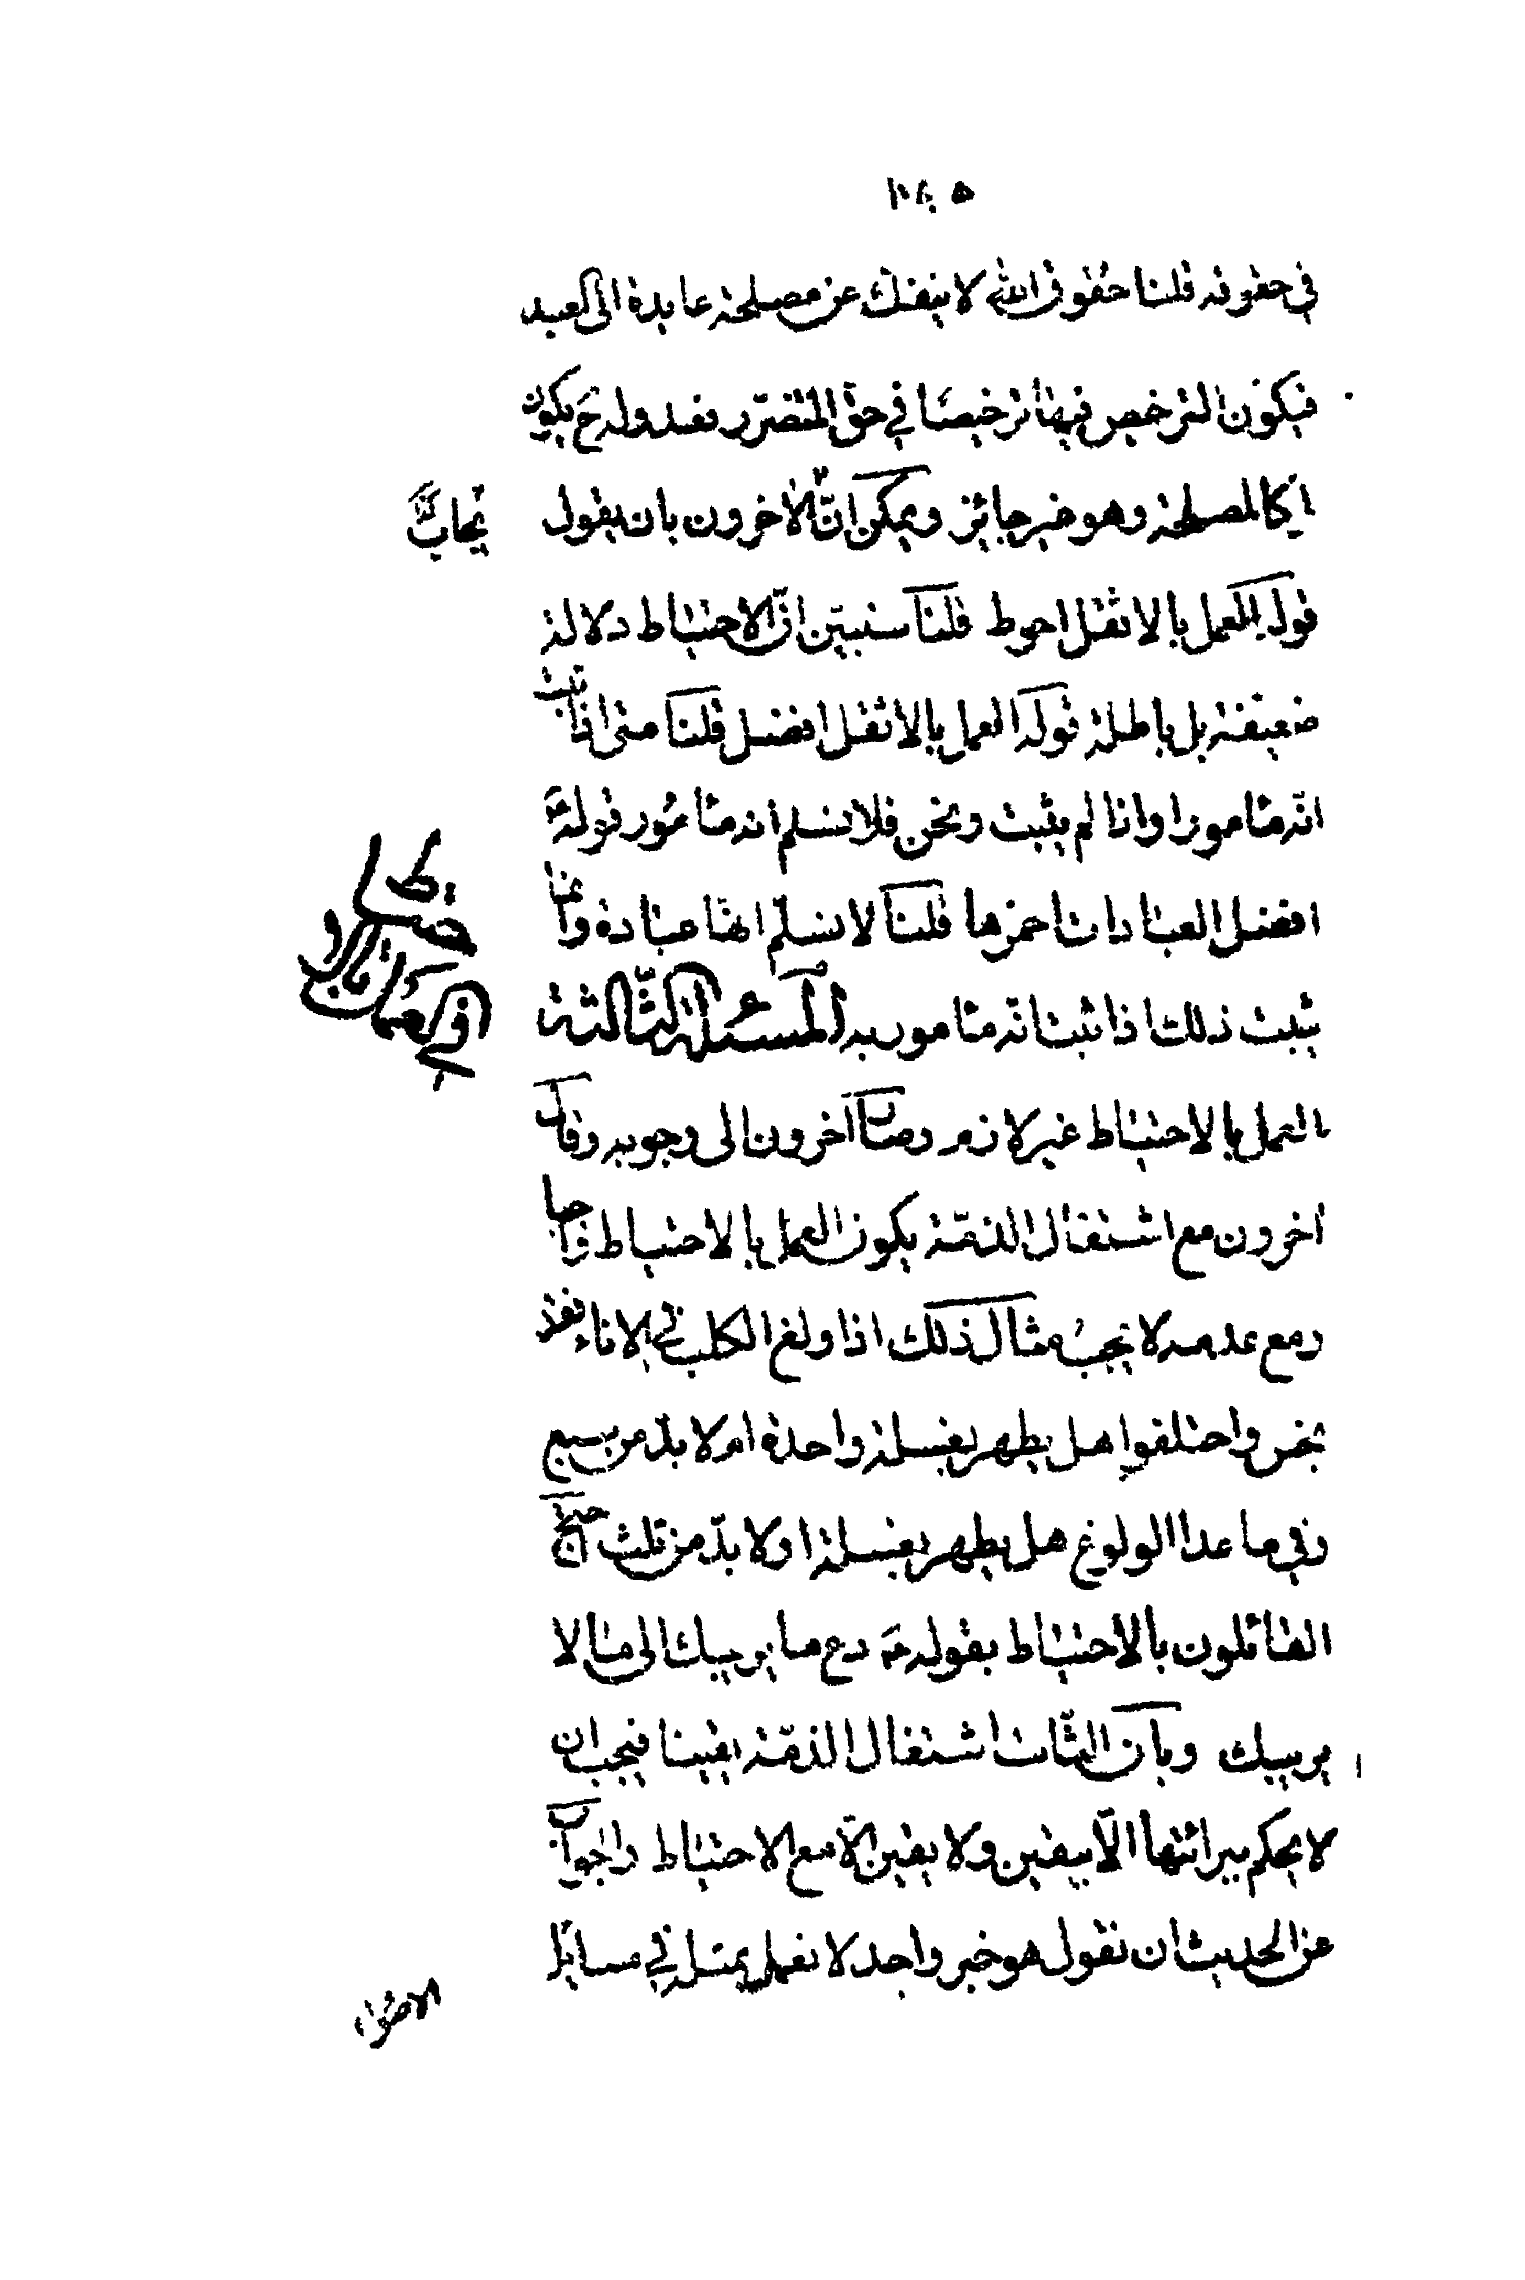 في حقوقه قلنا حقوق الله لا ينفك عن مصلحة عايدة الى العبد
فيكون الترخص فيها ترخيصا في حق المتضرر بعد وله ح يكون
المصلحة وهو خير جائز ويمكن ان الآخرون بان يقول
يجاب
قوله العمل بالاثقل احوط قلنا سنبين ان الاحتياط دلالة
ضعيفة بل باطلة قوله العمل بالاثقل افضل قلنا متى اذا ثبت
انه مامورا واذا لم يثبت ونحن فلا نسلم انه مامور قوله ع
افضل العبادات احمزها قلنا لا نسلم انها عبادة وانما
يثبت ذلك اذا ثبت انه مامور به المسئلة الثالثة
في العمل بالاحتياط
العمل بالاحتياط غير لازم وصار آخرون الى وجوبه وقال
آخرون مع اشتغال الذمة يكون العمل بالاحتياط واجبا
ومع عدمه لا يجب مثال ذلك اذا ولغ الكلب في الاناء فقد
نجس واختلفوا هل يطهر بغسلة واحدة ام لا بد من سبع
وفي ما عدا الولوغ هل يطهر بغسلة او لا بد من ثلث احتج
القائلون بالاحتياط بقوله ع دع ما يريبك الى ما لا
يريبك وبان الثابت اشتغال الذمة يقينا فيجب ان
لا يحكم ببرائتها الا بيقين ولا يقين الا مع الاحتياط والجواب
عن الحديث ان نقول هو خبر واحد لا نعمل بمثله في مسايل
الاصول